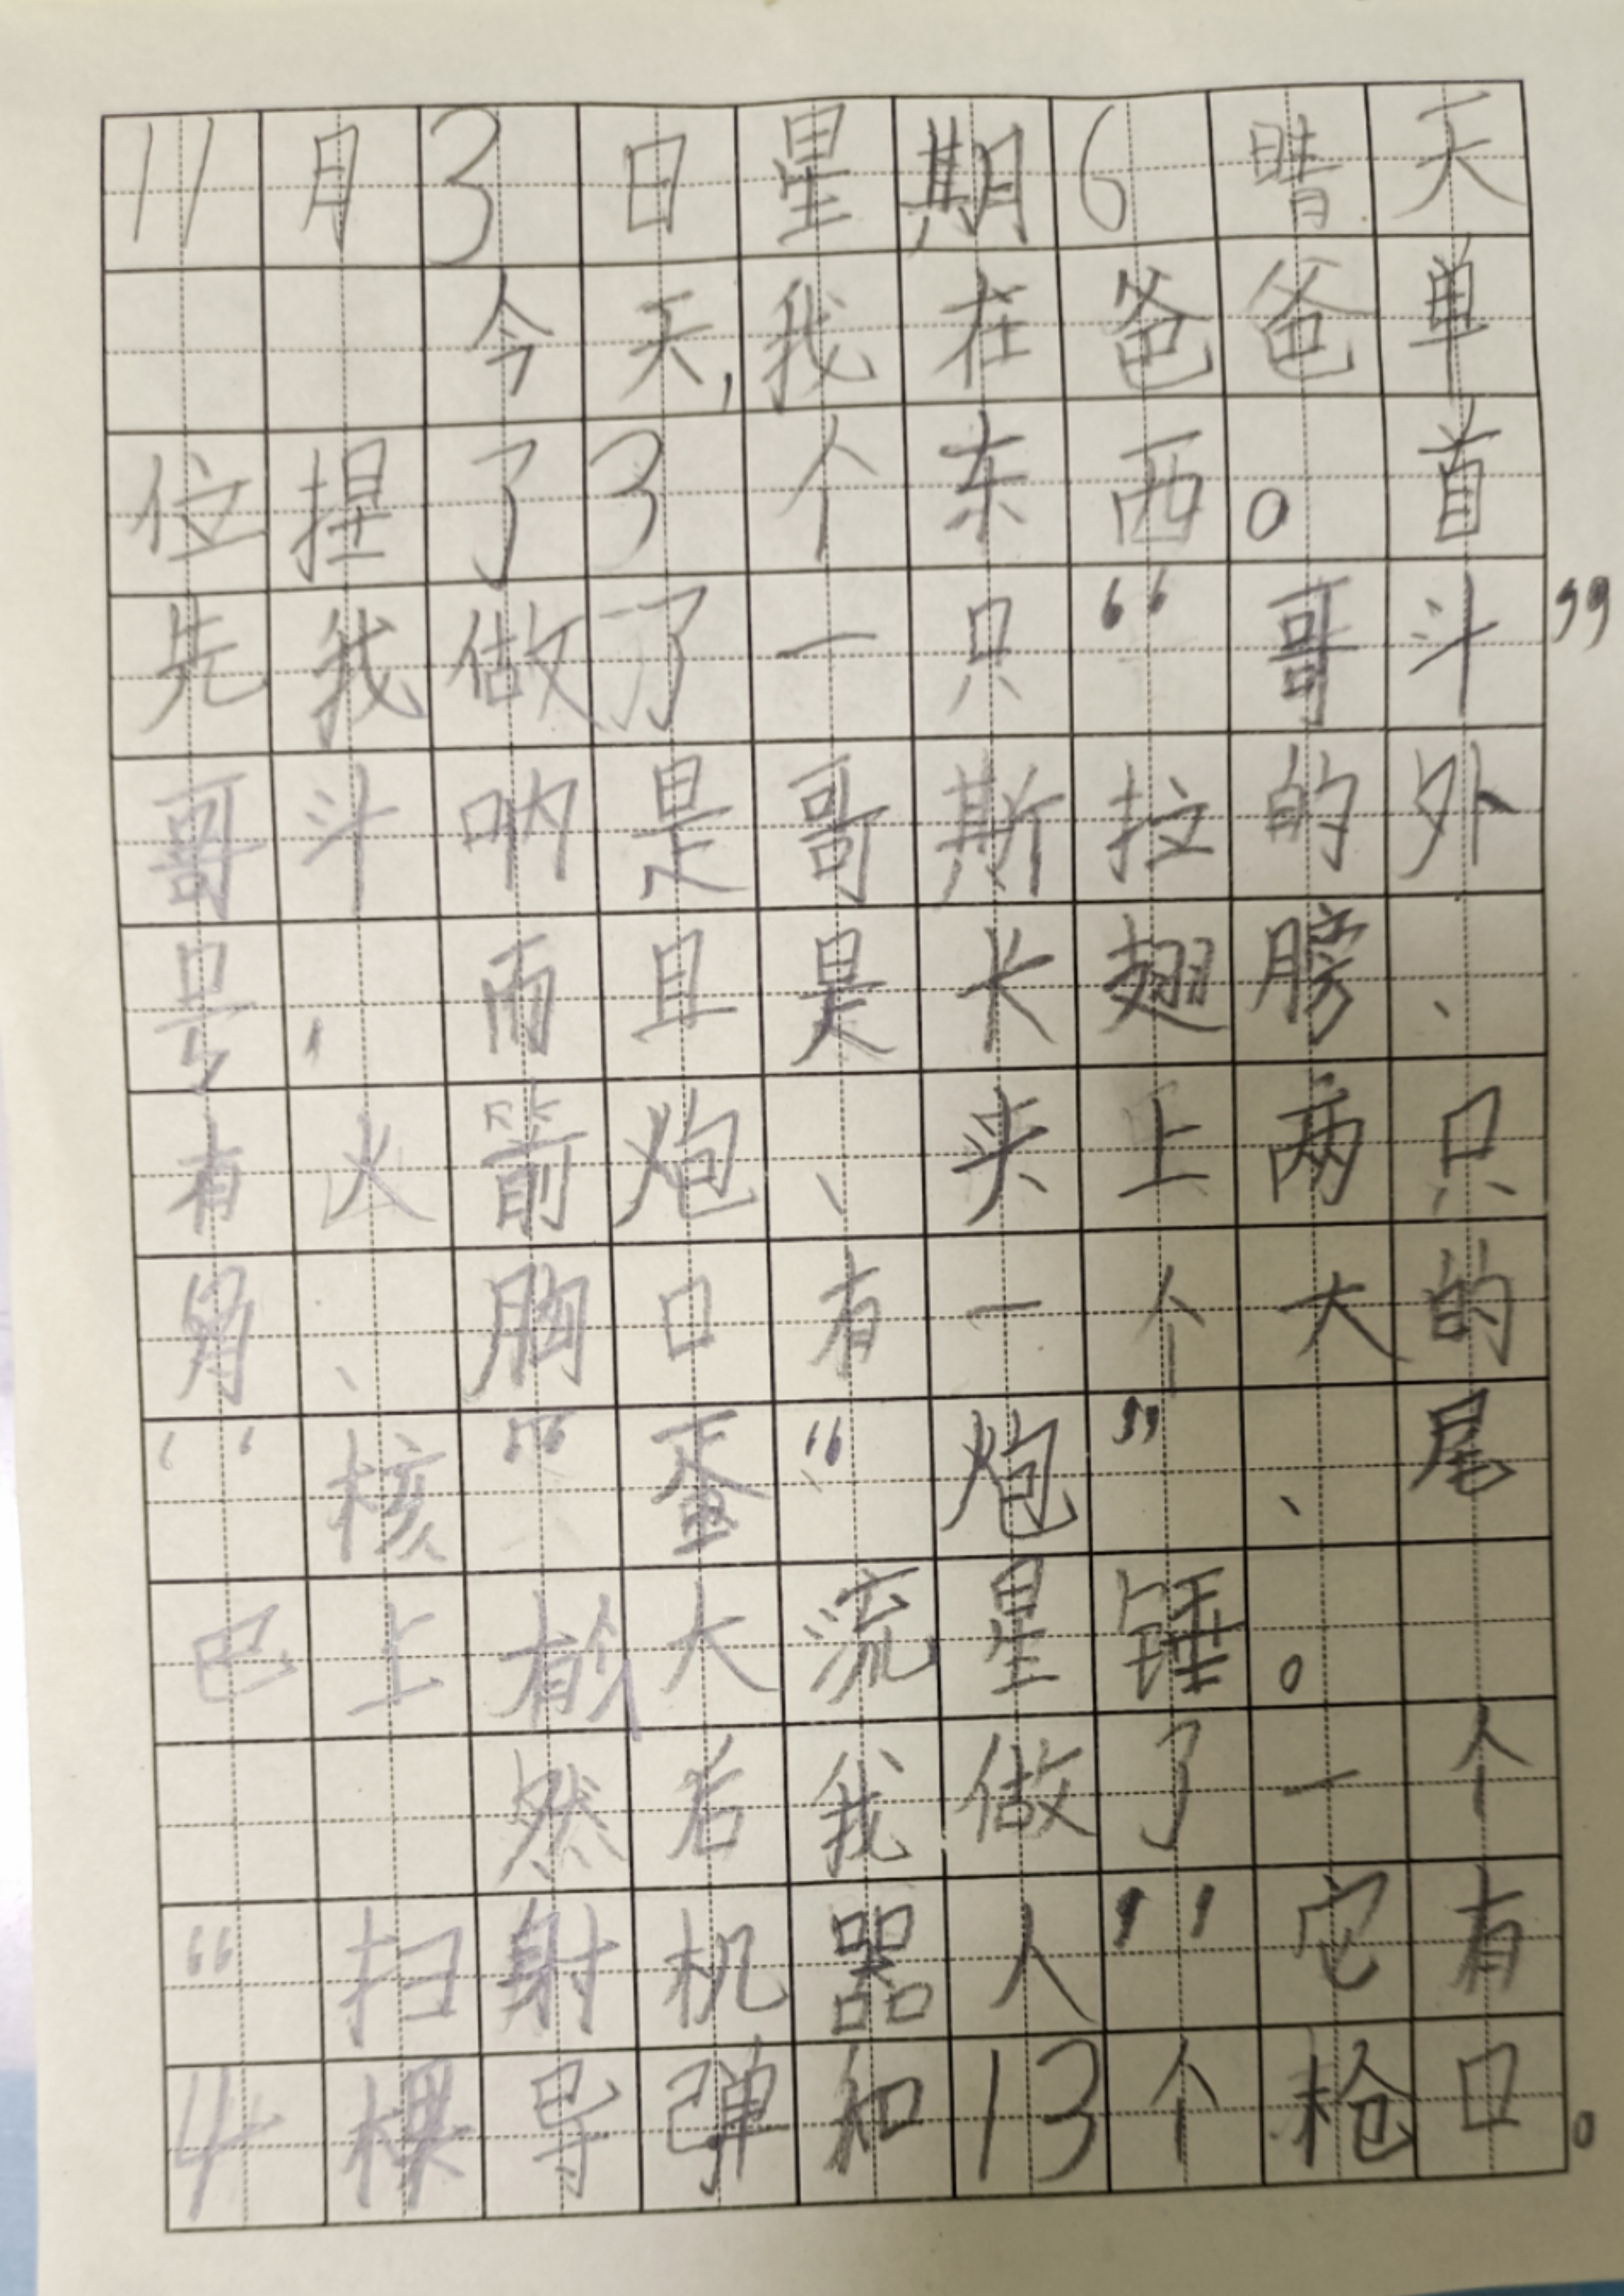 11月3日星期6晴天
今天,我在爸爸单
位捏了3个东西。首
先我做了一只“哥斗”
哥斗呐是哥斯拉的外
号,而且是长翅膀、
有火箭炮、头上两只
角、胸口有一个大的
“核“蛋“炮”、尾
巴上有个大流星锤。
然后我做了一个
“扫射机器人”它有
4棵导弹和13个枪口。